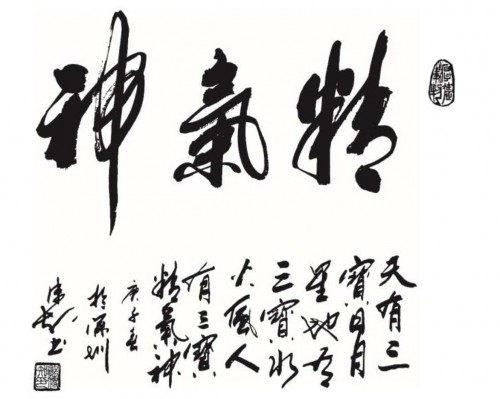 精氣神
天有三
寶日月
星地有
三寶水
火風人
有三寶
精氣神
庚子春
於深圳
書